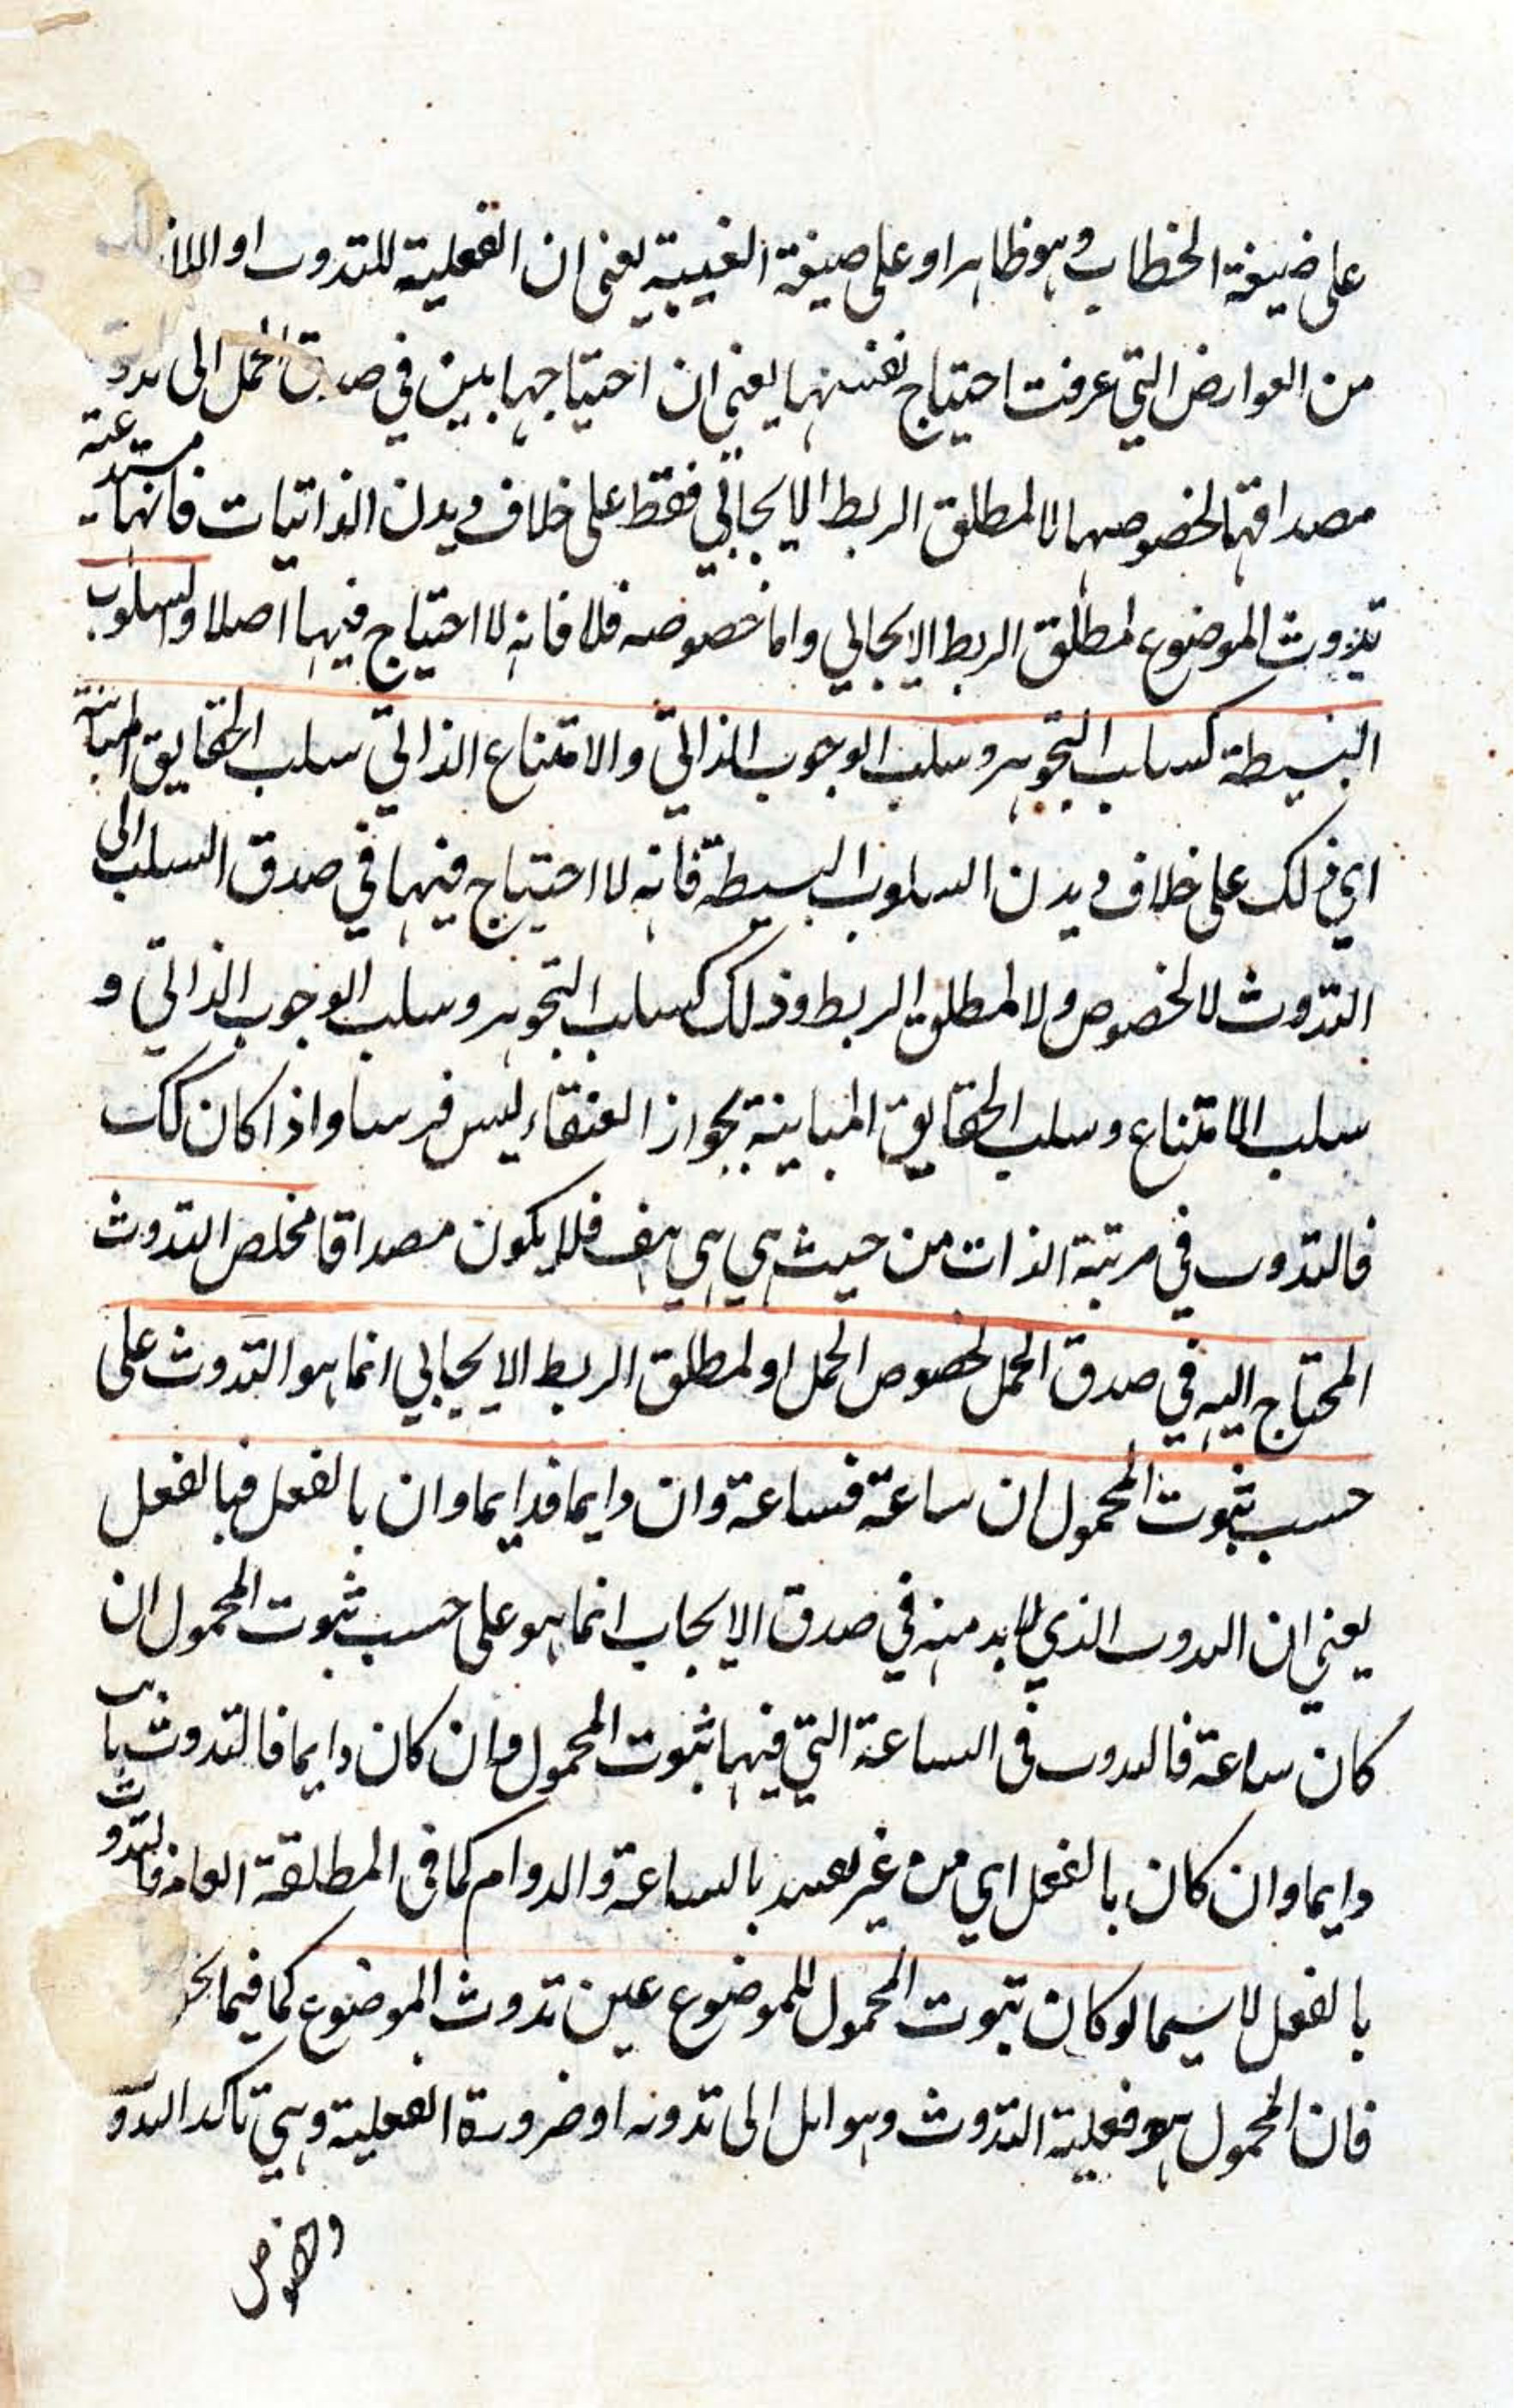 على صيغة الخطاب وهو ظاهر او على صيغة الغيبة يعنى ان الفعلية للتذوت او
من العوارض التي عرفت احتياج نفسها يعني ان احتياجها بين في صدق الحمل الى
مصداقها لخصوصها لا لمطلق الربط الايجابي فقط على خلاف ديدن الذاتيات فانها مستدعية
تذوت الموضوع لمطلق الربط الايجابي واما خصوصه فلا فانه لا احتياج فيها اصلا والسلوب
البسيطة كسلب التجوهر وسلب الوجوب الذاتي والامتناع الذاتي سلب الحقايق المباينة
اي ذلك على خلاف ديدن السلوب البسيطة فانه لا احتياج فيها في صدق السلب الى
التذوت لا لخصوص ولا لمطلق الربط وذلك كسلب التجوهر وسلب الوجوب الذاتي و
سلب الامتناع وسلب الحقايق المباينة بجواز العنقاء ليس فرسا واذا كان كك
فالتذوت في مرتبة الذات من حيث هي هي هف فلا يكون مصداقا مخلص التذوت
المحتاج اليه في صدق الحمل لخصوص الحمل او لمطلق الربط الايجابي انما هو التذوت على
حسب ثبوت المحمول ان ساعة فساعة وان دايما فدايما وان بالفعل فبالفعل
يعني ان التذوت الذي لا بد منه في صدق الايجاب انما هو على حسب ثبوت المحمول ان
كان ساعة فالتذوت في الساعة التي فيها ثبوت المحمول وان كان دايما فالتذوت ثابت
دايما وان كان بالفعل اي من غير تقييد بالساعة والدوام كما في المطلقة العامة فالتذوت
بالفعل لا سيما لو كان ثبوت المحمول للموضوع عين تذوت الموضوع كما فيما
فان المحمول هو فعلية التذوت وهو ايل الى تذوته او ضرورة الفعلية وهي تاكد